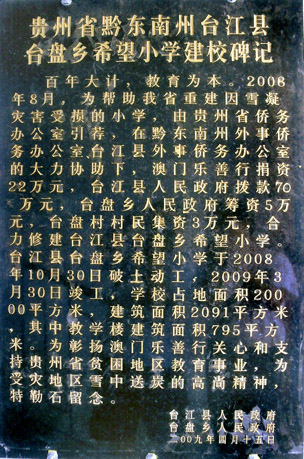 贵州省黔东南州台江县
台盘乡希望小学建校碑记
百年大计，教育为本。2008
年8月，为帮助我省重建因雪凝
灾害受损的小学，由贵州省侨务
办公室引荐，在黔东南州外事侨
务办公室、台江县外事侨务办公室
的大力协助下，澳门乐善行捐资
22万元，台江县人民政府拨款70
万元，台盘乡人民政府筹资5万
元，台盘村村民集资3万元，合
力修建台江县台盘乡希望小学。
台江县台盘乡希望小学于2008
年10月30日破土动工，2009年3
月30日竣工，学校占地面积200
00平方米，建筑面积2091平方米
，其中教学楼建筑面积795平方
米。为彰扬澳门乐善行关心和支
持贵州省贫困地区教育事业，为
受灾地区雪中送炭的高尚精神，
特勒石留念。
台江县人民政府
台盘乡人民政府
二00九年四月十五日